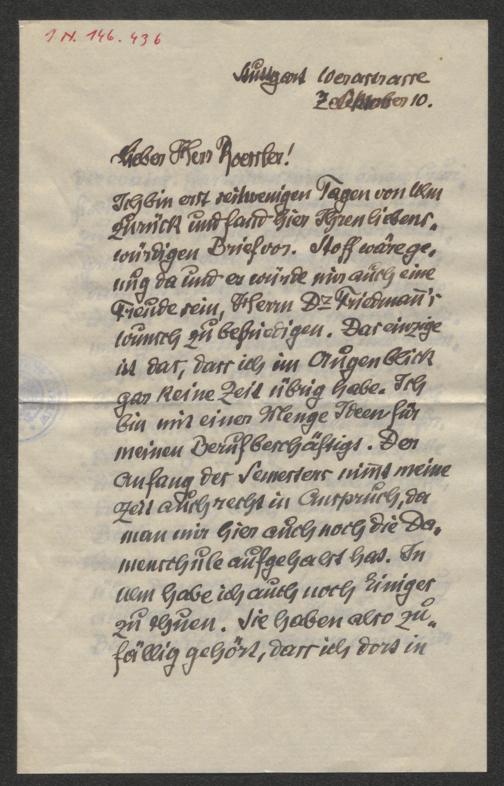 I N. 146.436
Stuttgart Werastrasse
7 Oktober 10.
Lieber Herr Roessler!
Ich bin erst seit wenigen Tagen von Ulm
zurück und fand hier Ihren liebens-
würdigen Brief vor. Stoff wäre ge-
nug da und es würde mir auch eine
Freude sein, Herrn Dr Friedmann's
Wunsch zu befriedigen. Das einzige
ist das, dass ich im Augenblick
gar keine Zeit übrig habe. Ich
bin mit einer Menge Ideen für
meinen Beruf beschäftigt. Der
Anfang des Semesters nimt meine
Zeit auch recht in Anspruch, da
man mir hier auch noch die Da-
menschule aufgehalst hat. In
Ulm habe ich auch noch Einiges
zu thuen. Sie haben also zu-
fällig gehört, dass ich dort in